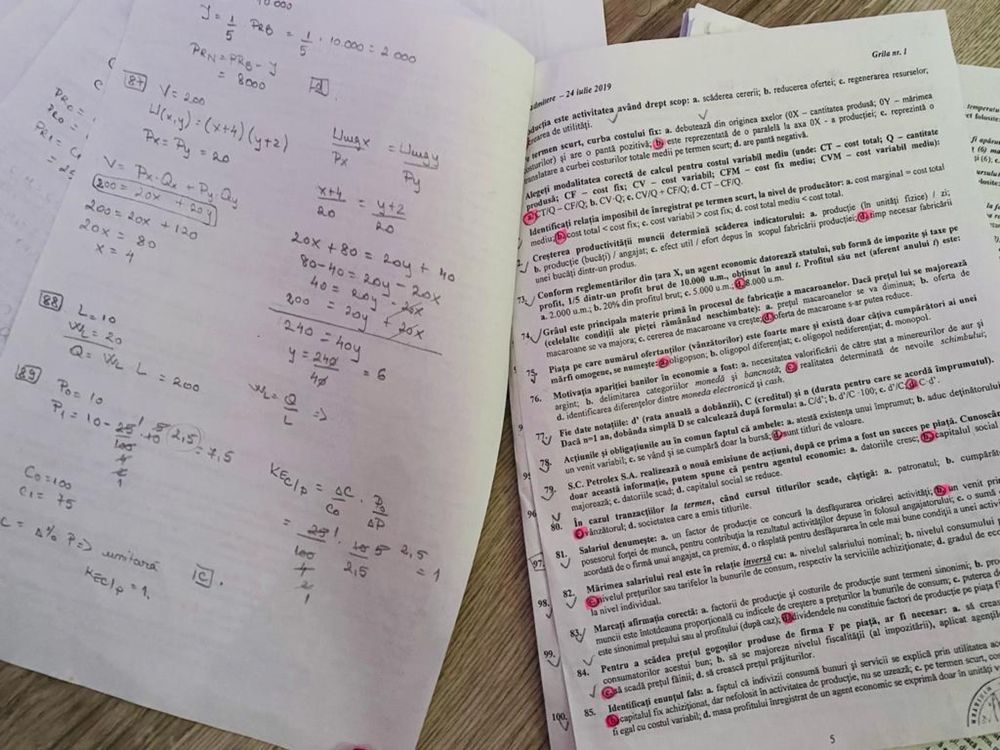 10 000
y = 1/5 · PRB = 1/5 · 10.000 = 2 000
PRN = PRB - y
= 8000
d.
87 V = 200
U(x,y) = (x+4)(y+2)
Px = Py = 20
V = Px · Qx + Py · Qy
200 = 20x + 20y
200 = 20x + 120
20x = 80
x = 4
Umgx/Px = Umgy/Py
x+4/20 = y+2/20
20x + 80 = 20y + 40
80 - 40 = 20y - 20x
40 = 20y - 20x
200 = 20y + 20x
240 = 40y
y = 240/40 = 6
88 L = 10
WL = 20
Q = WL · L = 200
WL = Q/L =>
89 P0 = 10
P1 = 10 - 25/100 · 10 2,5 = 7,5
C0 = 100
C1 = 75
KEC/p = ΔC/C0 · P0/ΔP
= 25/100 · 10/2,5 = 1
Δ% P => unitară
KEC/p = 1.
C.
admitere – 24 iulie 2019
Grila nr. 1
activitatea având drept scop: a. scăderea cererii; b. reducerea ofertei; c. regenerarea resurselor;
crearea de utilități.
termen scurt, curba costului fix: a. debutează din originea axelor (0X – cantitatea produsă; 0Y – mărimea
costurilor) și are o pantă pozitivă; b. este reprezentată de o paralelă la axa 0X - a producției; c. reprezintă o
translatare a curbei costurilor totale medii pe termen scurt; d. are pantă negativă.
Alegeți modalitatea corectă de calcul pentru costul variabil mediu (unde: CT – cost total; Q – cantitate
produsă; CF – cost fix; CV – cost variabil; CFM – cost fix mediu; CVM – cost variabil mediu):
a. CT/Q – CF/Q; b. CV·Q; c. CV/Q + CF/Q; d. CT – CF/Q.
Identificați relația imposibil de înregistrat pe termen scurt, la nivel de producător: a. cost marginal = cost total
mediu; b. cost total < cost fix; c. cost variabil > cost fix; d. cost total mediu < cost total.
Creșterea productivității muncii determină scăderea indicatorului: a. producție (în unități fizice) / zi;
b. producție (bucăți) / angajat; c. efect util / efort depus în scopul fabricării producției; d. timp necesar fabricării
unei bucăți dintr-un produs.
73. Conform reglementărilor din țara X, un agent economic datorează statului, sub formă de impozite și taxe pe
profit, 1/5 dintr-un profit brut de 10.000 u.m., obținut în anul t. Profitul său net (aferent anului t) este:
a. 2.000 u.m.; b. 20% din profitul brut; c. 5.000 u.m.; d. 8.000 u.m.
74. Grâul este principala materie primă în procesul de fabricație a macaroanelor. Dacă prețul lui se majorează
(celelalte condiții ale pieței rămânând neschimbate): a. prețul macaroanelor se va diminua; b. oferta de
macaroane se va majora; c. cererea de macaroane va crește; d. oferta de macaroane s-ar putea reduce.
75. Piața pe care numărul ofertanților (vânzătorilor) este foarte mare și există doar câțiva cumpărători ai unei
mărfi omogene, se numește: a. oligopson; b. oligopol diferențiat; c. oligopol nediferențiat; d. monopol.
76. Motivația apariției banilor în economie a fost: a. necesitatea valorificării de către stat a minereurilor de aur și
argint; b. delimitarea categoriilor monedă și bancnotă; c. realitatea determinată de nevoile schimbului;
d. identificarea diferențelor dintre moneda electronică și cash.
77. Fie date notațiile: d' (rata anuală a dobânzii), C (creditul) și n (durata pentru care se acordă împrumutul).
Dacă n=1 an, dobânda simplă D se calculează după formula: a. C/d'; b. d'/C ·100; c. d'/C; d. C·d'.
78. Acțiunile și obligațiunile au în comun faptul că ambele: a. atestă existența unui împrumut; b. aduc deținătorului
un venit variabil; c. se vând și se cumpără doar la bursă; d. sunt titluri de valoare.
79. S.C. Petrolex S.A. realizează o nouă emisiune de acțiuni, după ce prima a fost un succes pe piață. Cunoscând
doar această informație, putem spune că pentru agentul economic: a. datoriile cresc; b. capitalul social
majorează; c. datoriile scad; d. capitalul social se reduce.
80. În cazul tranzacțiilor la termen, când cursul titlurilor scade, câștigă: a. patronatul; b. cumpărătorul
c. vânzătorul; d. societatea care a emis titlurile.
81. Salariul denumește: a. un factor de producție ce concură la desfășurarea oricărei activități; b. un venit primit
posesorul forței de muncă, pentru contribuția la rezultatul activităților depuse în folosul angajatorului; c. o sumă
acordată de o firmă unui angajat, ca premiu; d. o răsplată pentru desfășurarea în cele mai bune condiții a unei activități
82. Mărimea salariului real este în relație inversă cu: a. nivelul salariului nominal; b. nivelul consumului
c. nivelul prețurilor sau tarifelor la bunurile de consum, respectiv la serviciile achiziționate; d. gradul de
la nivel individual.
83. Marcați afirmația corectă: a. factorii de producție și costurile de producție sunt termeni sinonimi; b.
muncii este întotdeauna proporțională cu indicele de creștere a prețurilor la bunurile de consum; c. puterea de
este sinonimul prețului sau al profitului (după caz); d. dividendele nu constituie factori de producție pe piața
84. Pentru a scădea prețul gogoșilor produse de firma F pe piață, ar fi necesar: a. să crească
consumatorilor acestui bun; b. să se majoreze nivelul fiscalității (al impozitării), aplicat agenților
c. să scadă prețul făinii; d. să crească prețul prăjiturilor.
85. Identificați enunțul fals: a. faptul că indivizii consumă bunuri și servicii se explică prin utilitatea
b. capitalul fix achiziționat, dar nefolosit în activitatea de producție, nu se uzează; c. pe termen scurt,
fi egal cu costul variabil; d. masa profitului înregistrat de un agent economic se exprimă doar în unități
96
97.
98.
99.
100.
5